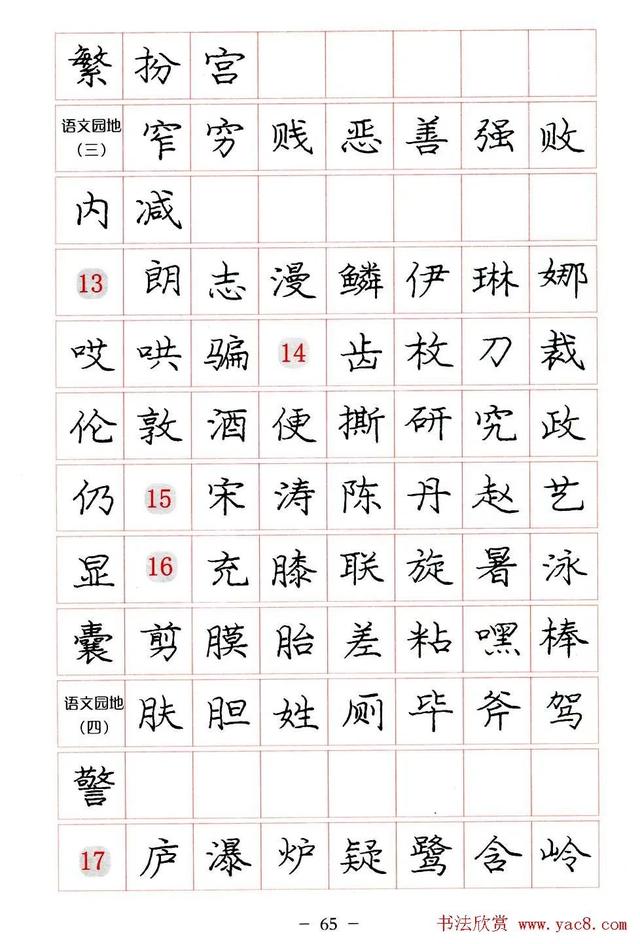 繁 扮 宫
语文园地(三) 窄 穷 贱 恶 善 强 败
内 减
13 朗 志 漫 鳞 伊 琳 娜
哎 哄 骗 14 齿 枚 刀 裁
伦 敦 酒 便 撕 研 究 政
仍 15 宋 涛 陈 丹 赵 艺
显 16 充 膝 联 旋 暑 泳
囊 剪 膜 胎 差 粘 嘿 棒
语文园地(四) 肤 胆 姓 厕 毕 斧 驾
警
17 庐 瀑 炉 疑 鹭 含 岭
- 65 -
书法欣赏 www.yac8.com